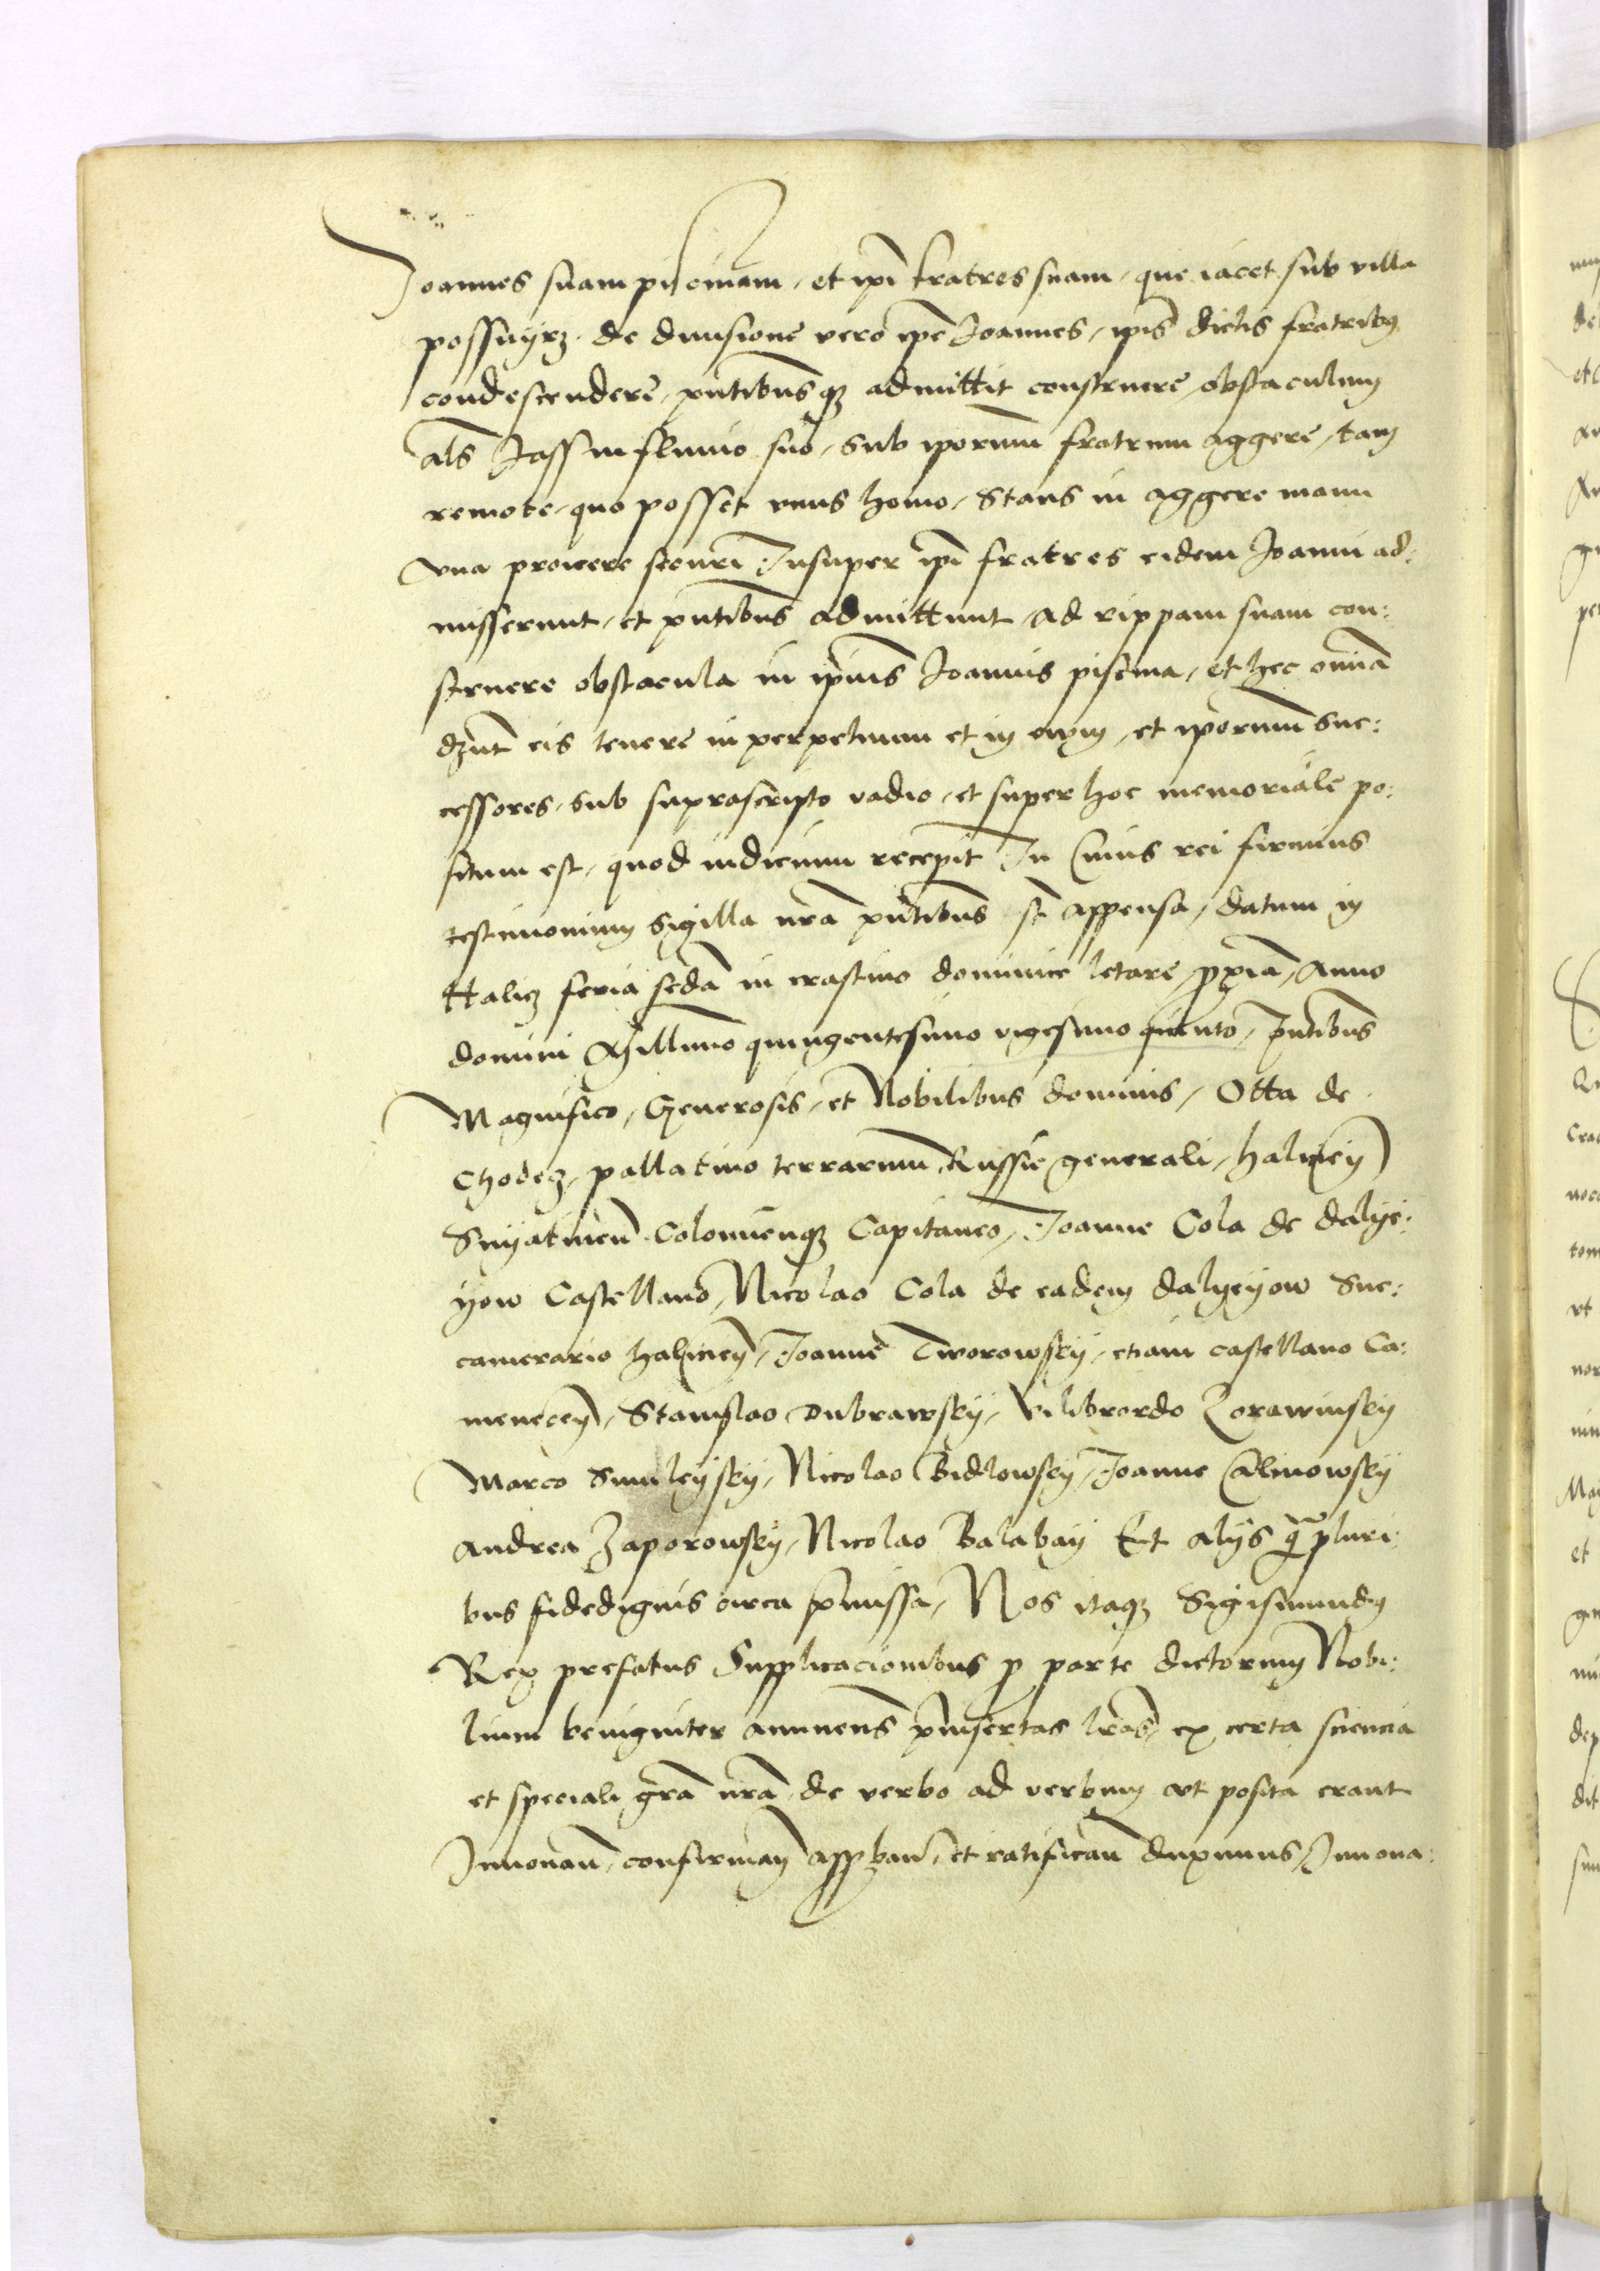 Joannes suam piscinam, et ipi fratres suam, que iacet sub villa
possuyrz. de diuisione vero ipe Joannes, ipis dictis fratribus
condescendere, pntibusq admittit construere obstaculum
als Jass in fluuio suo, sub iporum fratrum aggere, tam
remote, quo posset vnus homo, Stans in aggere manu
vna proicere securi Insuper ipi fratres eidem Joanni ad:
misserunt, et pntibus admittunt, ad rippam suam con:
struere obstacula in ipius Joannis piscina, et hec omnia
dznt eis tenere in perpetuum et in ewm, et iporum suc:
cessores, sub suprascripto vadio, et super hoc memoriale po:
situm est, quod iudicium recepit In Cuius rei firmius
testimonium sigilla nra pntibus st appensa, datum in
Halicz feria scda in crastino dominice letare, pxia, Anno
domini Millimo quingentesimo vigesimo quinto, pntibus
Magnifico, Generosis, et Nobilibus dominis, Otta de
Chodecz, pallatino terrarum Russie generali, halicien
Snyatinen Colomienq Capitaneo, Joanne Cola de dalye:
yow Castellano, Nicolao Cola de eadem dalyeyow Suc:
camerario halicien, Joanne Tworowsky, etiam castellano Ca:
menecen, Stanislao Dubrawsky, Vilibrordo Zorawinsky
Marco Smuleysky, Nicolao Bidlowsky, Joanne Calinowsky
Andrea Zaporowsky, Nicolao Balaban Et alys q pluri:
bus fidedignis circa pmissa, Nos itaq Sigismundus
Rex prefatus Supplicacionibus p parte dictorum Nobi:
lium benigniter annuens pinsertas lras, ex certa sciencia
et speciali gra nra de verbo ad verbum vt posita erant
Innouan, confirman appban, et ratifican duximus, Innoua: